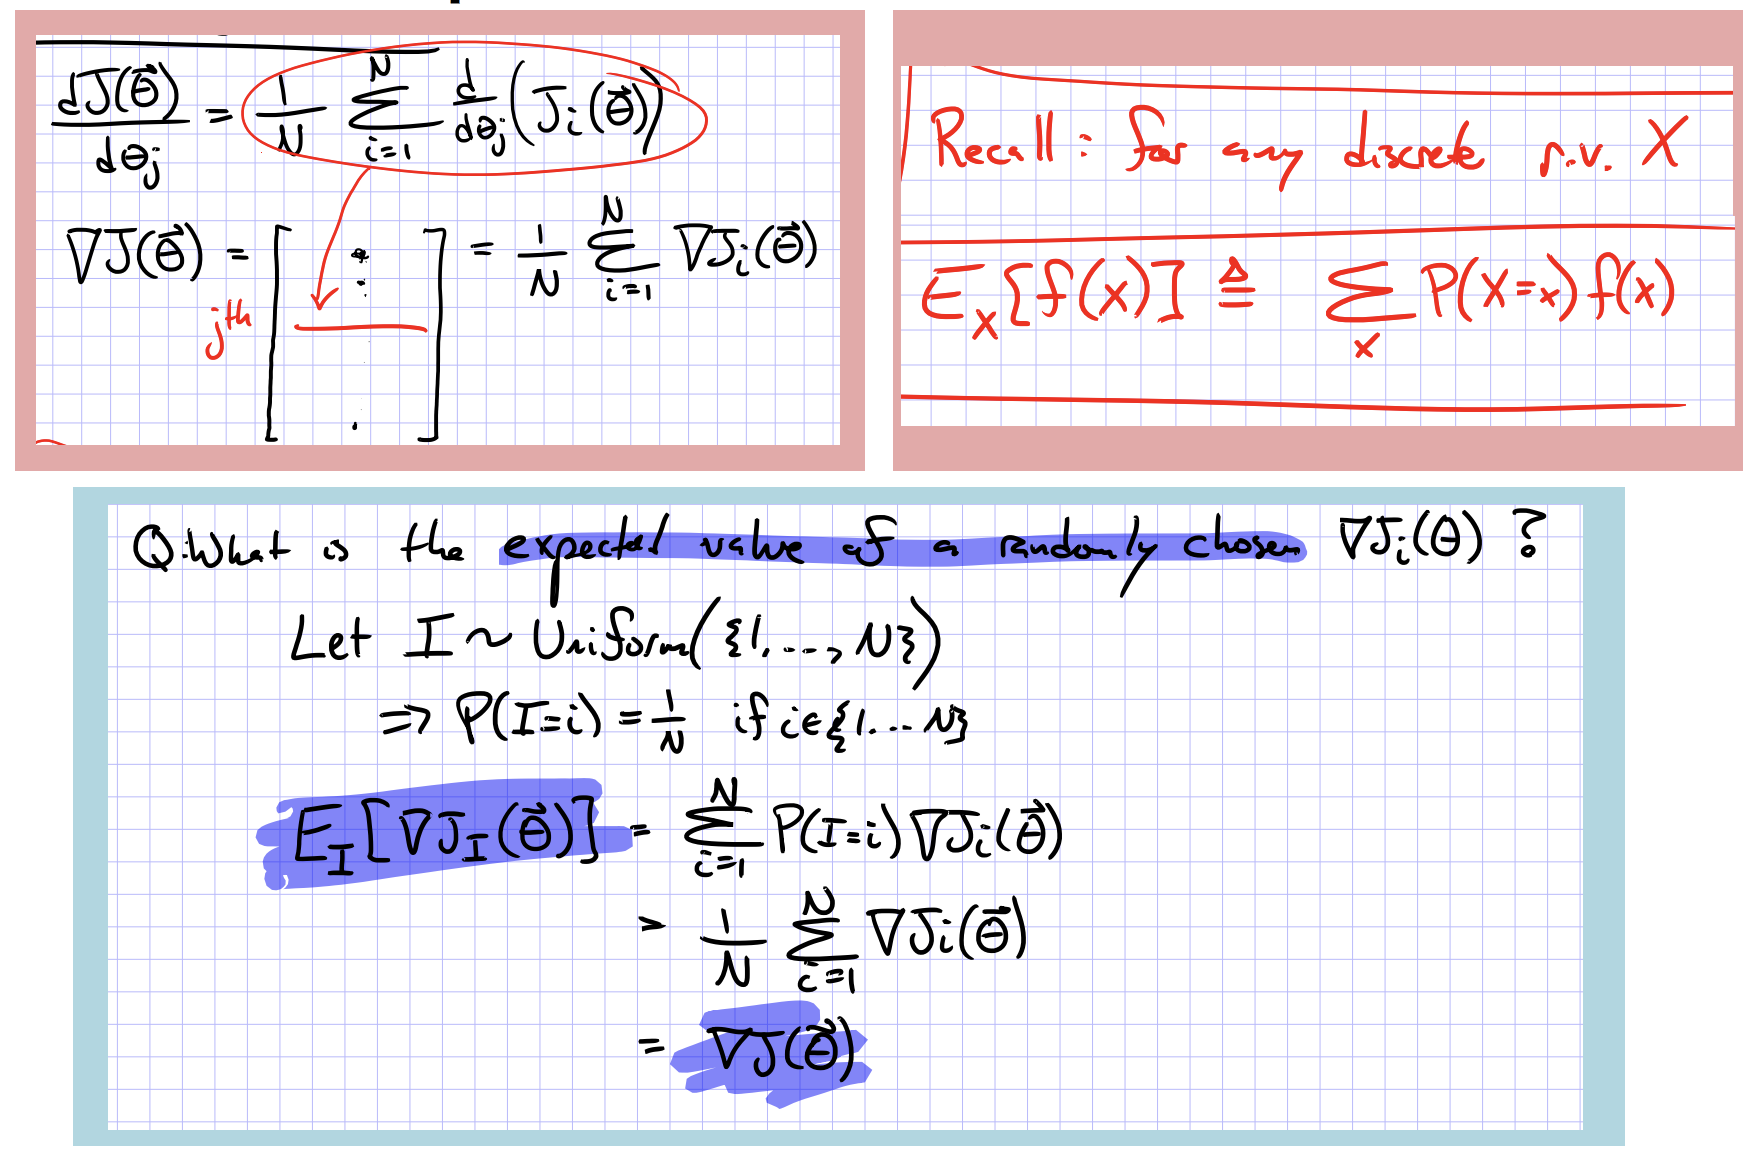 dJ(θ⃗)/dθj = 1/N Σ_{i=1}^{N} d/dθj (Ji(θ⃗))
∇J(θ⃗) = [ ] = 1/N Σ_{i=1}^{N} ∇Ji(θ⃗)
jth
Recall: for any discrete r.v. X
E_X[f(x)] ≜ Σ_x P(X=x) f(x)
Q: What is the expected value of a randomly chosen ∇Ji(θ) ?
Let I ~ Uniform({1,...,N})
=> P(I=i) = 1/N if i∈{1...N}
E_I[∇J_I(θ⃗)] = Σ_{i=1}^{N} P(I=i) ∇Ji(θ⃗)
= 1/N Σ_{i=1}^{N} ∇Ji(θ⃗)
= ∇J(θ⃗)